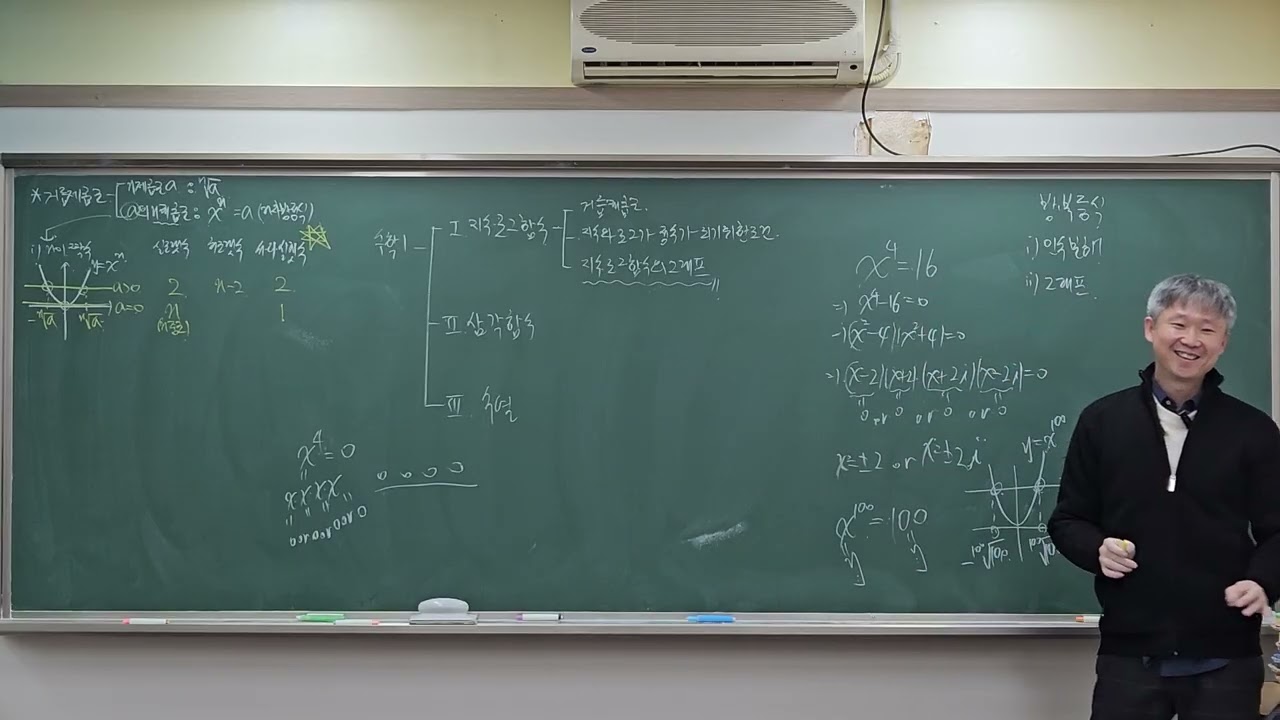 *거듭제곱근 n제곱근 a : ⁿ√a
a의 n제곱근 : xⁿ = a (n차방정식)
i) n이 짝수 실근갯수 허근갯수 서로다른실근수
y=xⁿ
a>0 2 n-2 2
a=0 n 1
-ⁿ√a ⁿ√a (n중근)
수학 I
I 지수로그함수
거듭제곱근
지수와 로그가 종속가 되기 위한 조건
지수로그함수의 그래프
II 삼각함수
III. 수열
x⁴=0
x x x x
0 or 0 or 0 or 0
0 0 0 0
방정식
i) 인수분해
ii) 그래프
x⁴=16
⇒ x⁴-16=0
⇒ (x²-4)(x²+4)=0
⇒ (x-2)(x+2)(x+2i)(x-2i)=0
0 or 0 or 0 or 0
x=±2 or x=±2i
x¹⁰⁰=100
y y
y=x¹⁰⁰
-¹⁰⁰√100 ¹⁰⁰√100